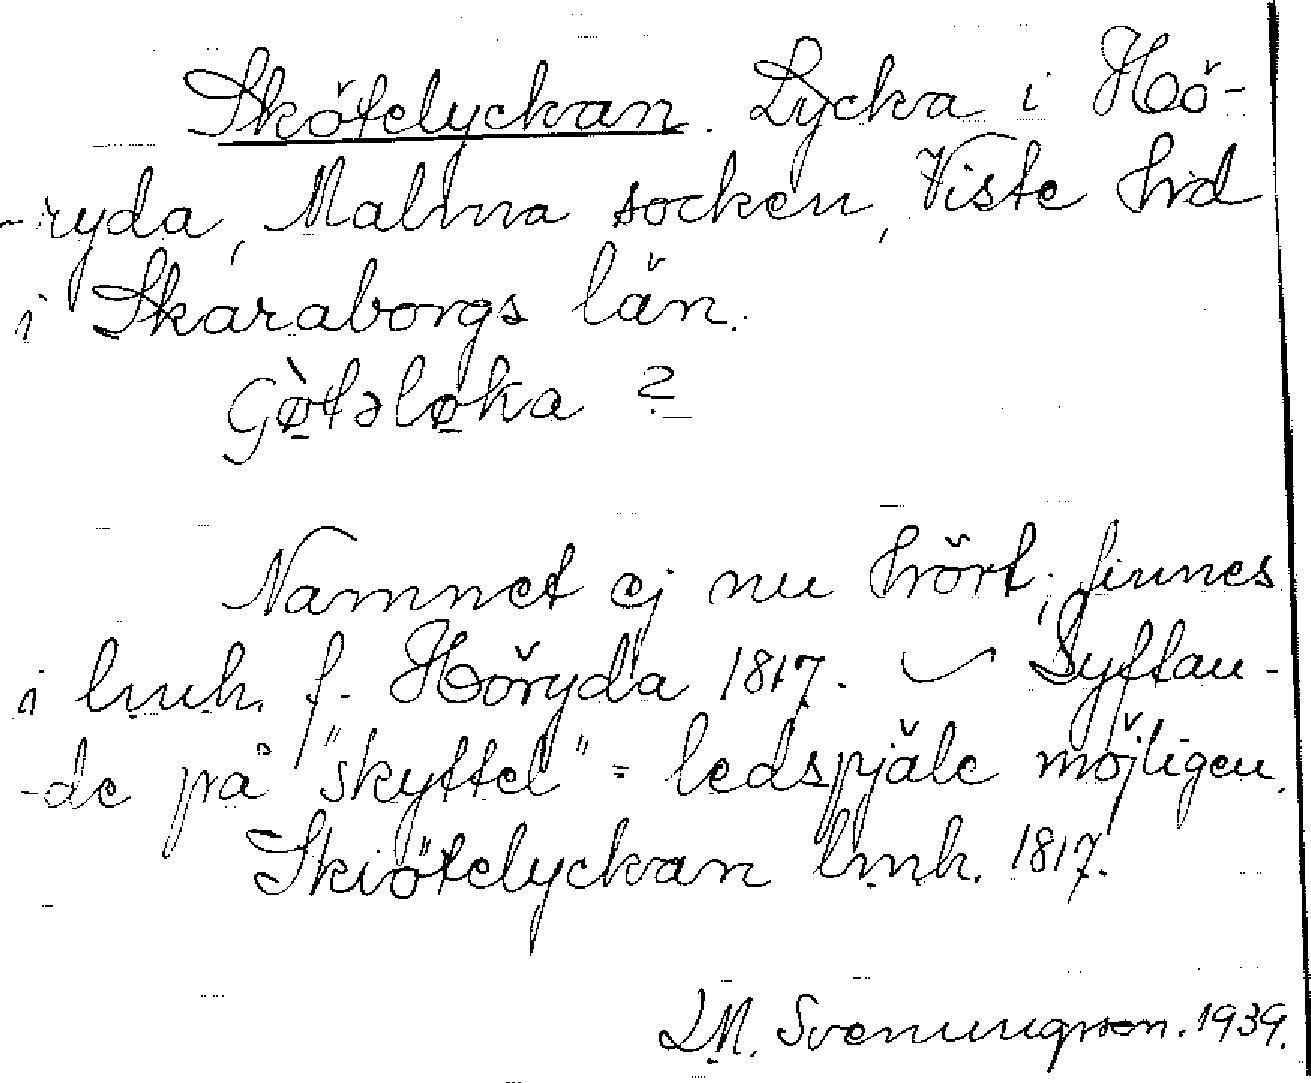 Skötelyckan. Lycka i Hö-
-ryda, Malma socken, Viste hrd
i Skaraborgs län.
Gø̀tələka ?
Namnet ej nu hört; finnes
i lmh. f. Höryda 1817. — Syftan-
-de på "skyttel" = ledspjäle möjligen.
Skiötelyckan lmh. 1817.
L.M. Svenungsson. 1939.